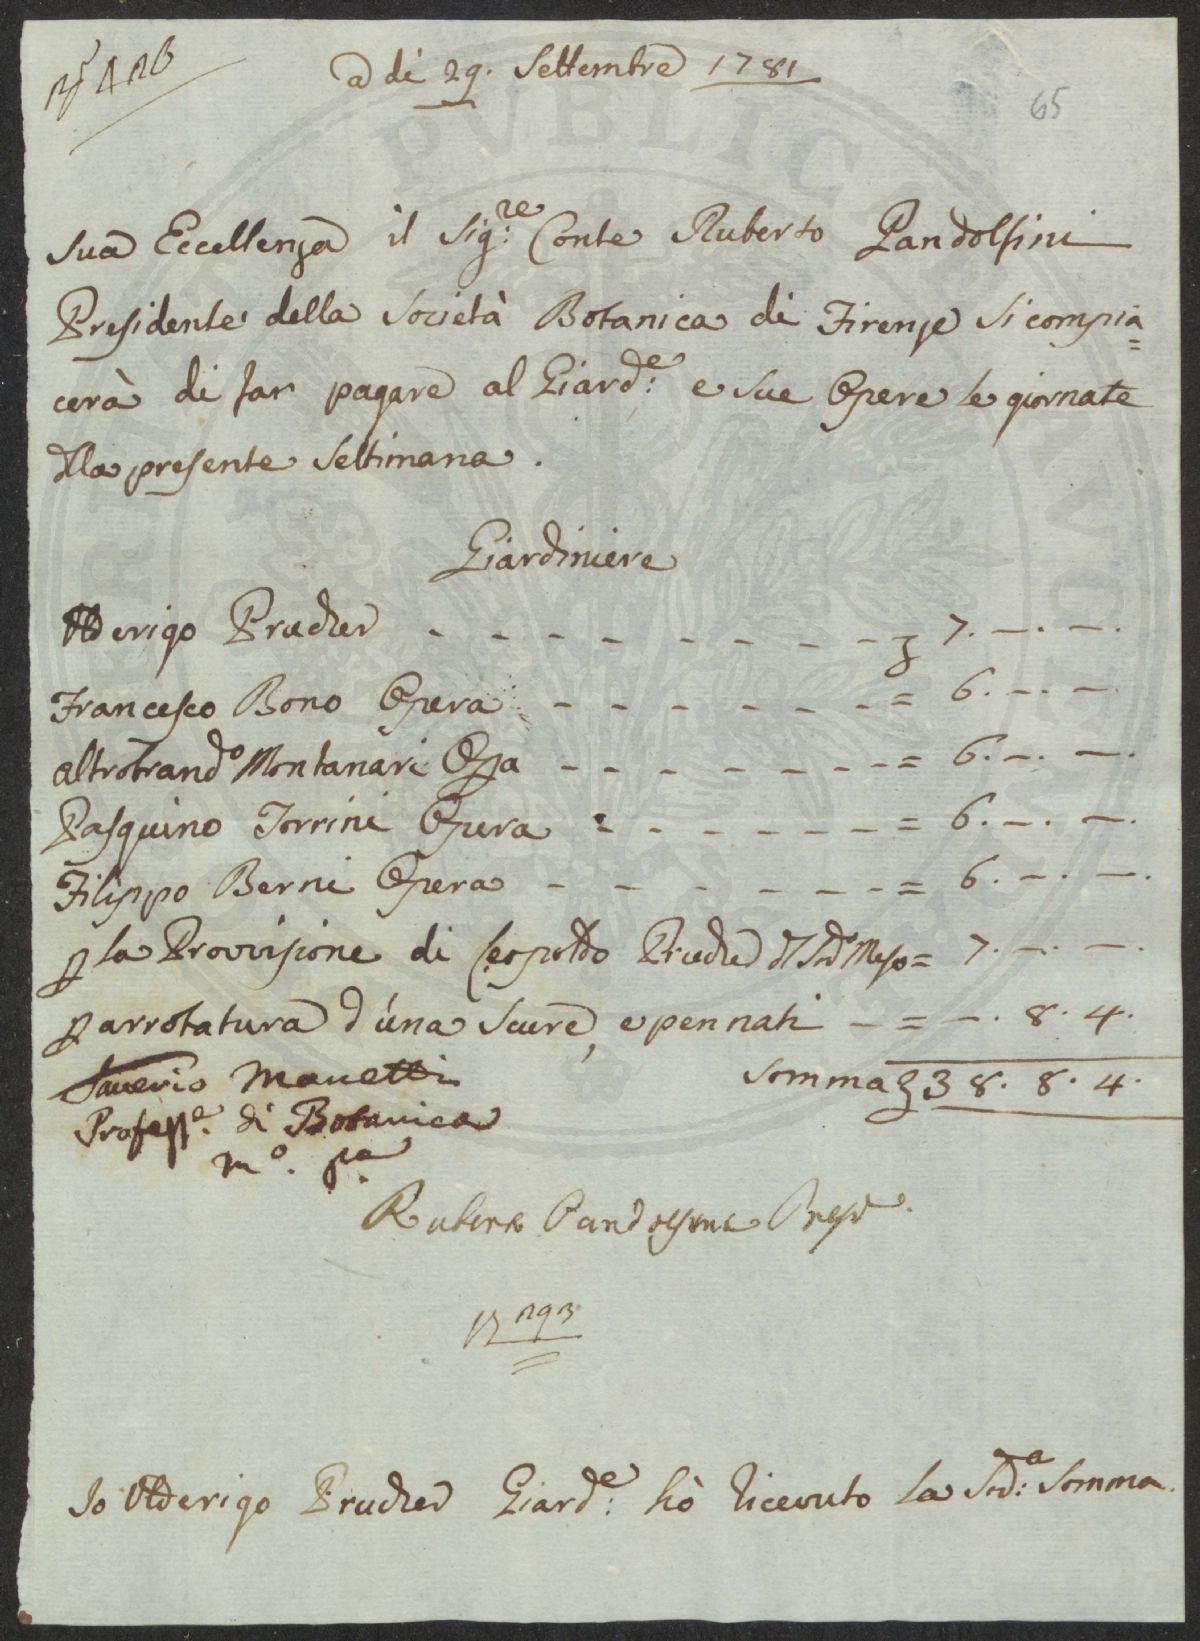 a dì 29. Settembre 1781
65
Sua Eccellenza il Sig:re Conte Ruberto Pandolfini
Presidente della Società Botanica di Firenze si compia=
cerà di far pagare al Giard:e e sue Opere le giornate
dlla presente Settimana.
Giardiniere
Odderigo Prucker - - - - - - - - - 7. —. —.
Francesco Bono Opera - - - - - - - = 6. —. —.
Altrobrand:o Montanari Opa - - - - - - - = 6. —. —.
Pasquino Torrini Opera - - - - - - = 6. —. —.
Filippo Berni Opera - - - - - - - = 6. —. —.
p la Provvisione di Leopoldo Prucker dl Sud:o Mese = 7. —. —.
p arrotatura d'una Scure, e pennati — = —. 8. 4.
Somma 38. 8. 4.
Saverio Manetti
Profess:e di Botanica
m:o p:a
Ruberto Pandolfini Presid:e
Io Odderigo Prucker Giard:e hò ricevuto la Sud:a Somma.
PVBLIC